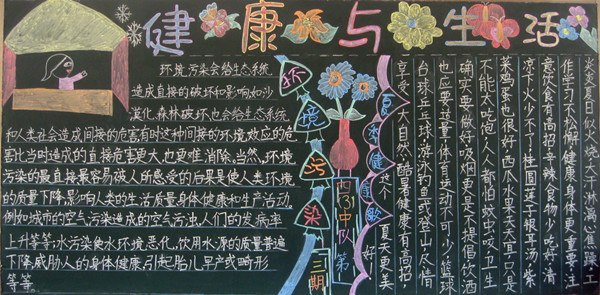 健康与生活
环境污染会给生态系统
造成直接的破坏和影响如沙
漠化.森林破坏.也会给生态系统
和人类社会造成间接的危害有时这种间接的环境效应的危
害比当时造成的直接危害更大,也更难消除.当然,环境
污染的最直接最容易被人所感受的后果是使人类环境
的质量下降,影响人类的生活质量身体健康和生产活动
例如城市的空气污染造成的空气污浊,人们的发病率
上升等等;水污染使水环境恶化,饮用水源的质量普遍
下降,威胁人的身体健康,引起胎儿早产或畸形
等等
环境污染
第三期
中队
夏季健康歌
炎炎夏日似火烧,大汗淋漓心焦躁.工
作学习不松懈,健康身体更重要.注
意饮食有高招:辛辣食物少吃好.清
凉下火少不了.桂圆莲子银耳汤,紫
菜鸡蛋也很好.西瓜水果天天有只是
不能太吃饱.人人都怕蚊虫咬,卫生
确实要做好.吸烟更是不提倡饮酒
也应要适量.体育运动不可少,篮球
台球乒乓球,游泳钓鱼或登山,尽情
享受大自然.酷暑健康有高招,
夏天更美
好.